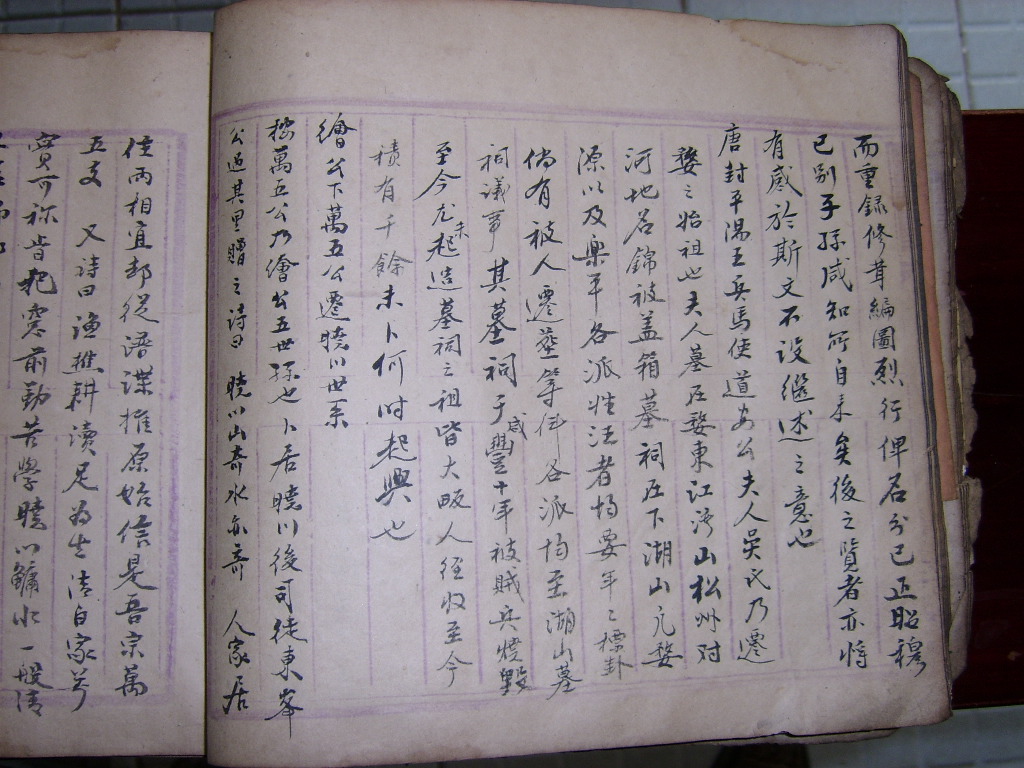 而重録修葺編圖烈行俾名分已正昭穆
已别子孫咸知所自来矣後之覧者亦將
有感於斯文不設繼述之意也
唐封平陽王兵馬使道安公夫人吴氏乃遷
婺之始祖也夫人墓在婺東江湾山松州对
河地名錦被盖箱墓祠在下湖山凢婺
源以及樂平各派性汪者均要年々標卦
倘有被人遷塟等件各派均至湖山墓
祠議事其墓祠于咸豐十年被賊兵燒毀
至今尤未起造墓祠之祖皆大畈人徑收至今
積有千餘未卜何时起興也
繪公下萬五公遷曉川世系
按萬五公乃繪公五世孫也卜居曉川後司徒東峯
公過其里贈之诗曰 曉川山奇水亦奇 人家居
住两相宜却從譜諜推原始信是吾宗萬
五支 又诗曰漁樵耕讀足为生清白家
寳可称皆把窓前勤苦學曉川水一般清